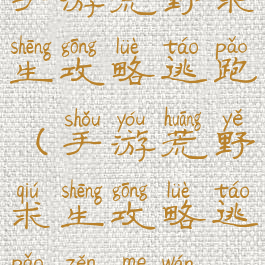 手游荒野求
shēng gōng lüè táo pǎo
生攻略逃跑
shǒu yóu huāng yě
（手游荒野
qiú shēng gōng lüè táo
求生攻略逃
pǎo zěn me wán